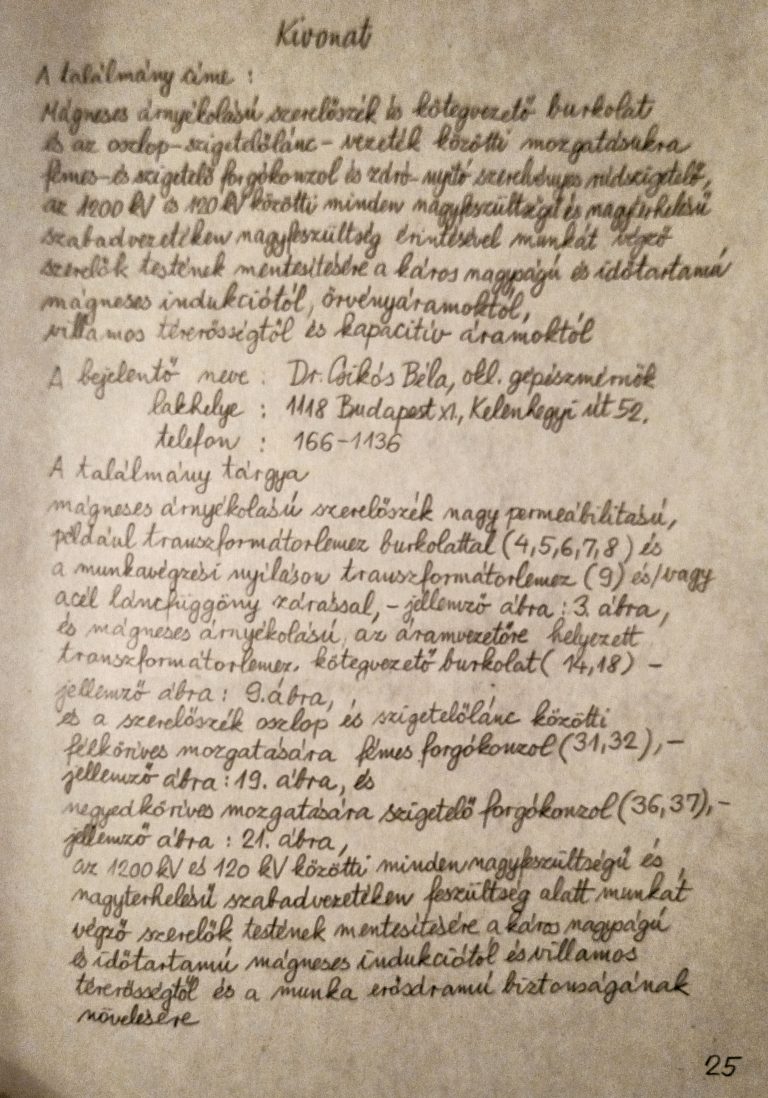 Kivonat
A találmány címe :
Mágneses árnyékolású szerelőszék és kötegvezető burkolat
és az oszlop-szigetelőlánc - vezeték közötti mozgatásukra
fémes- és szigetelő forgókonzol és záró-nyitó szerelvényes rúdszigetelő,
az 1200 kV és 120 kV közötti minden nagyfeszültségű és nagyterhelésű
szabadvezetéken nagyfeszültség érintésével munkát végző
szerelők testének mentesítésére a káros nagyságú és időtartamú
mágneses indukciótól, örvényáramoktól,
villamos térerősségtől és kapacitív áramoktól
A bejelentő neve : Dr. Csikós Béla, okl. gépészmérnök
lakhelye : 1118 Budapest XI, Kelenhegyi út 52.
telefon : 166-1136
A találmány tárgya
mágneses árnyékolású szerelőszék nagy permeábilitású,
például transzformátorlemez burkolattal (4,5,6,7,8) és
a munkavégzési nyíláson transzformátorlemez (9) és/vagy
acél láncfüggöny zárással, - jellemző ábra : 3. ábra,
és mágneses árnyékolású, az áramvezetőre helyezett
transzformátorlemez. kötegvezető burkolat (14,18) -
jellemző ábra : 9. ábra,
és a szerelőszék oszlop és szigetelőlánc közötti
félköríves mozgatására fémes forgókonzol (31,32), -
jellemző ábra : 19. ábra, és
negyedköríves mozgatására szigetelő forgókonzol (36,37), -
jellemző ábra : 21. ábra,
az 1200 kV és 120 kV közötti minden nagyfeszültségű és
nagyterhelésű szabadvezetéken feszültség alatt munkát
végző szerelők testének mentesítésére a káros nagyságú
és időtartamú mágneses indukciótól és villamos
térerősségtől és a munka erősáramú biztonságának
növelésére
25